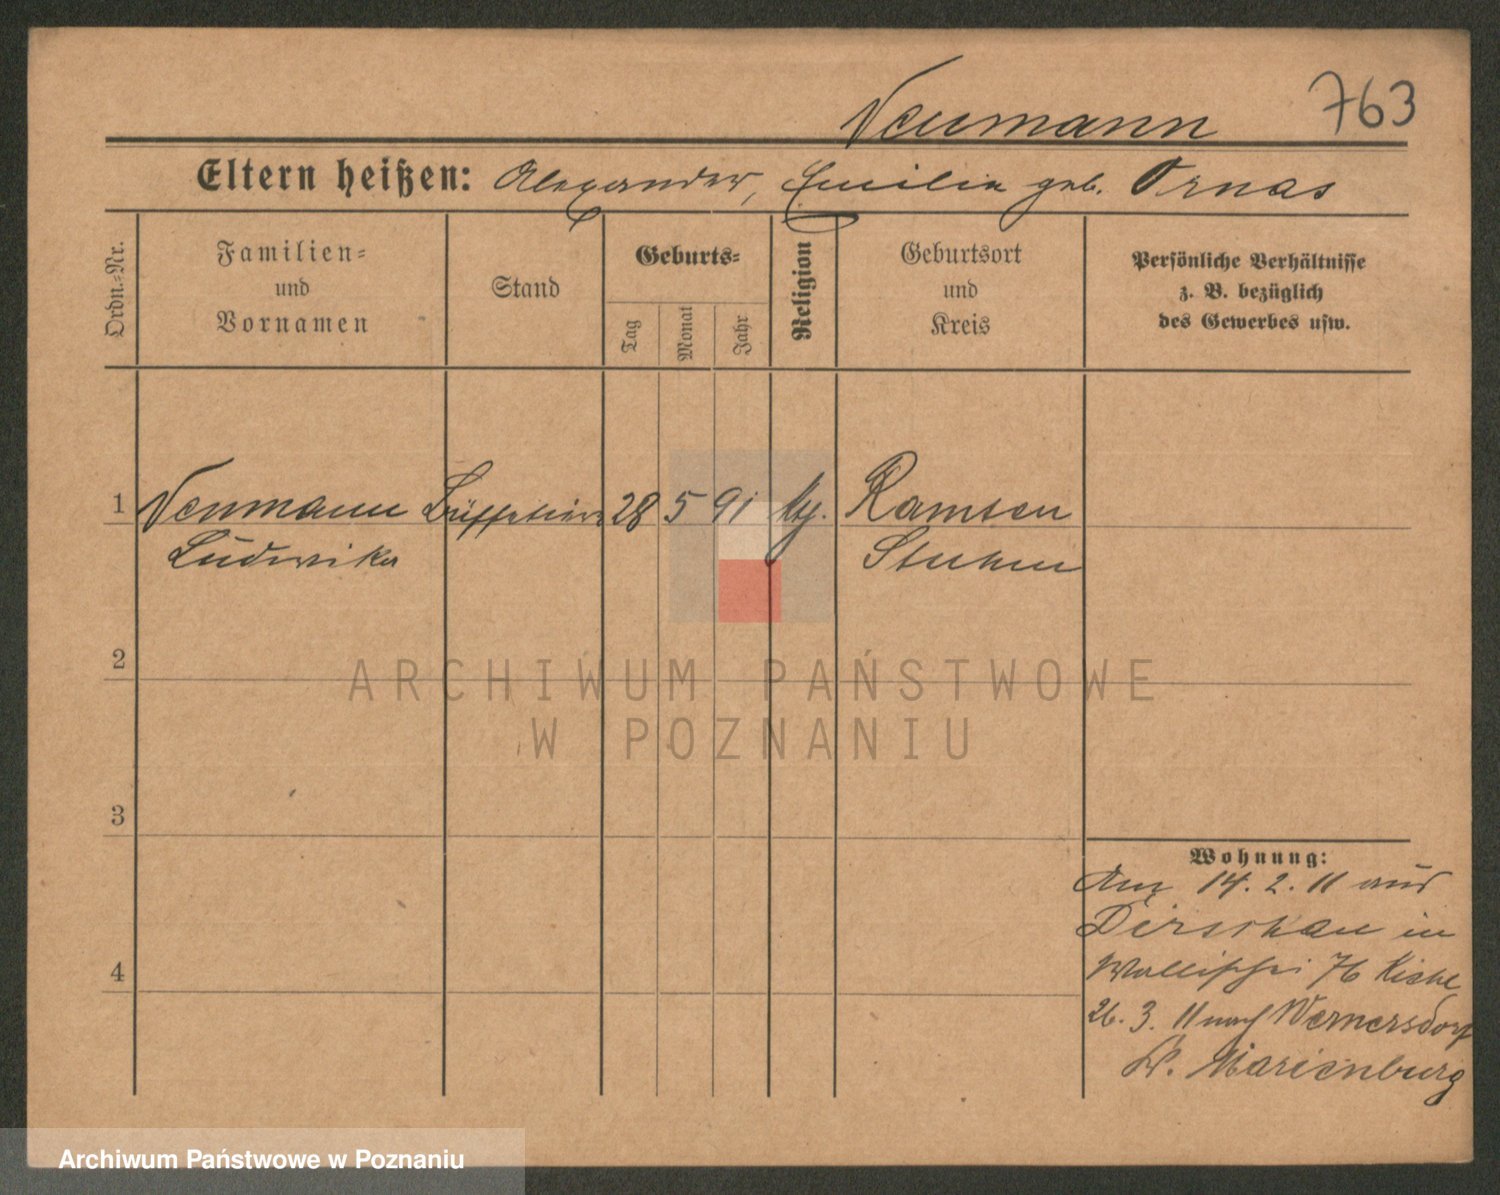 763
Neumann
Eltern heißen: Alexander, Emilie geb. Ornas
Ordn.-Nr.
Familien-
und
Vornamen
Stand
Geburts-
Tag
Monat
Jahr
Religion
Geburtsort
und
Kreis
Persönliche Verhältnisse
z. B. bezüglich
des Gewerbes usw.
1 Neumann 28 5 91 Ramsen
Ludwika Stuhm
2
3
4
Wohnung:
14. 2. 11 aus
Dirschau in
Wallischei 76
26. 3. 11 nach Wernersdorf
Kr. Marienburg
ARCHIWUM PAŃSTWOWE
W POZNANIU
Archiwum Państwowe w Poznaniu